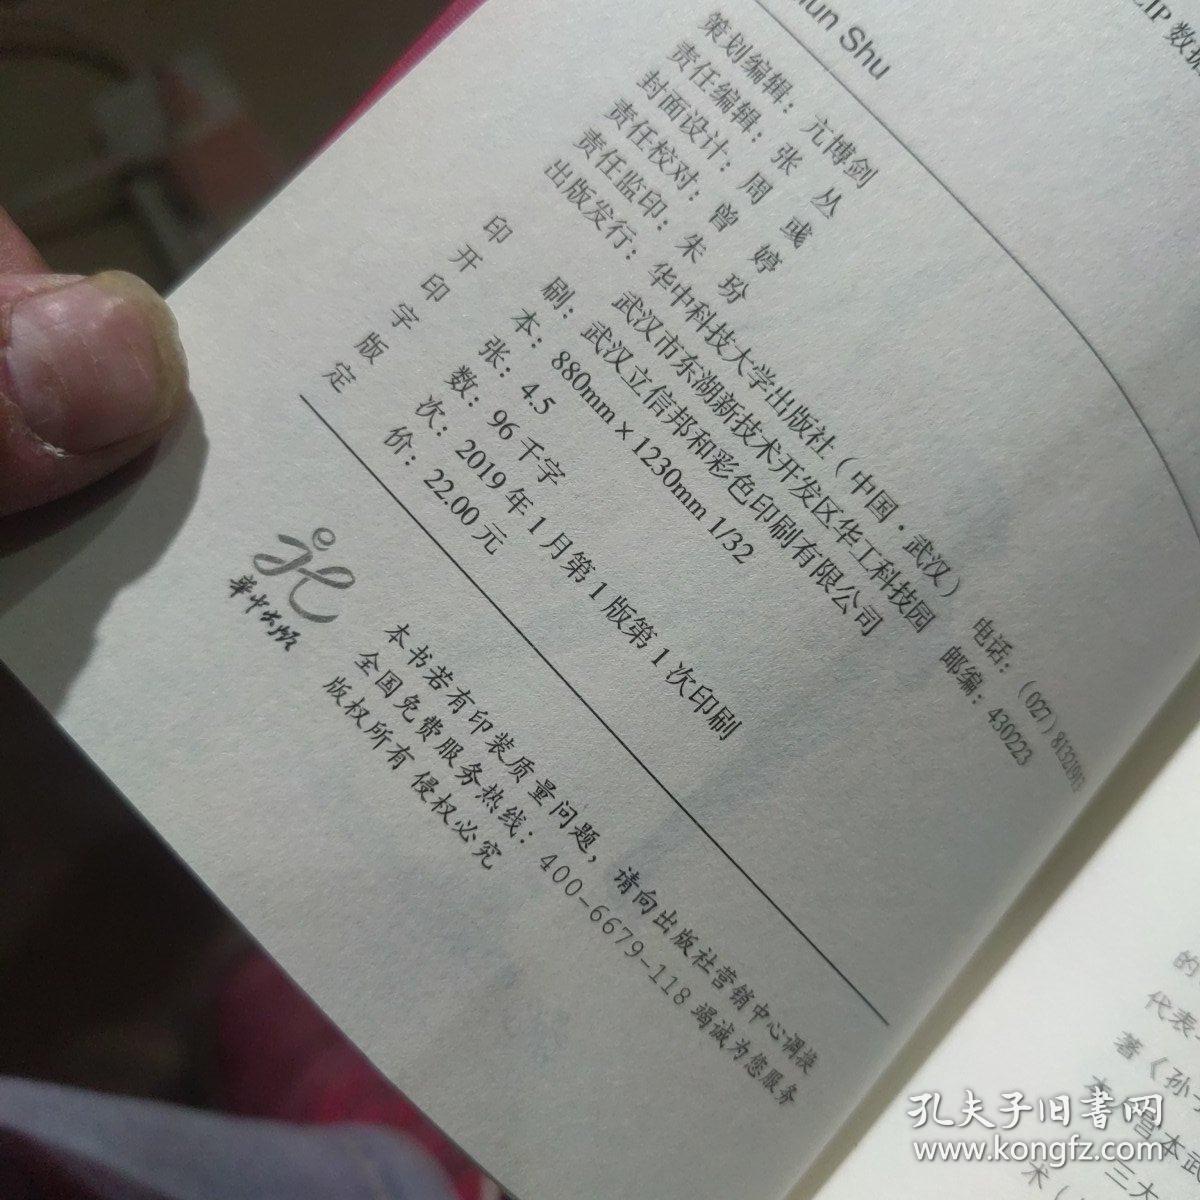 hun Shu
策划编辑：亢博剑
责任编辑：张 丛
封面设计：周 彧
责任校对：曾 婷
责任监印：朱 玢
出版发行：华中科技大学出版社（中国·武汉） 电话：（027）81321913
武汉市东湖新技术开发区华工科技园 邮编：430223
印 刷：武汉立信邦和彩色印刷有限公司
开 本：880mm×1230mm 1/32
印 张：4.5
字 数：96千字
版 次：2019年1月第1版第1次印刷
定 价：22.00元
華中出版
本书若有印装质量问题，请向出版社营销中心调换
全国免费服务热线：400-6679-118 竭诚为您服务
版权所有 侵权必究
CIP 数据
的
代表
著《孙子
本宫本武
三大
术（
孔夫子旧书网
www.kongfz.com